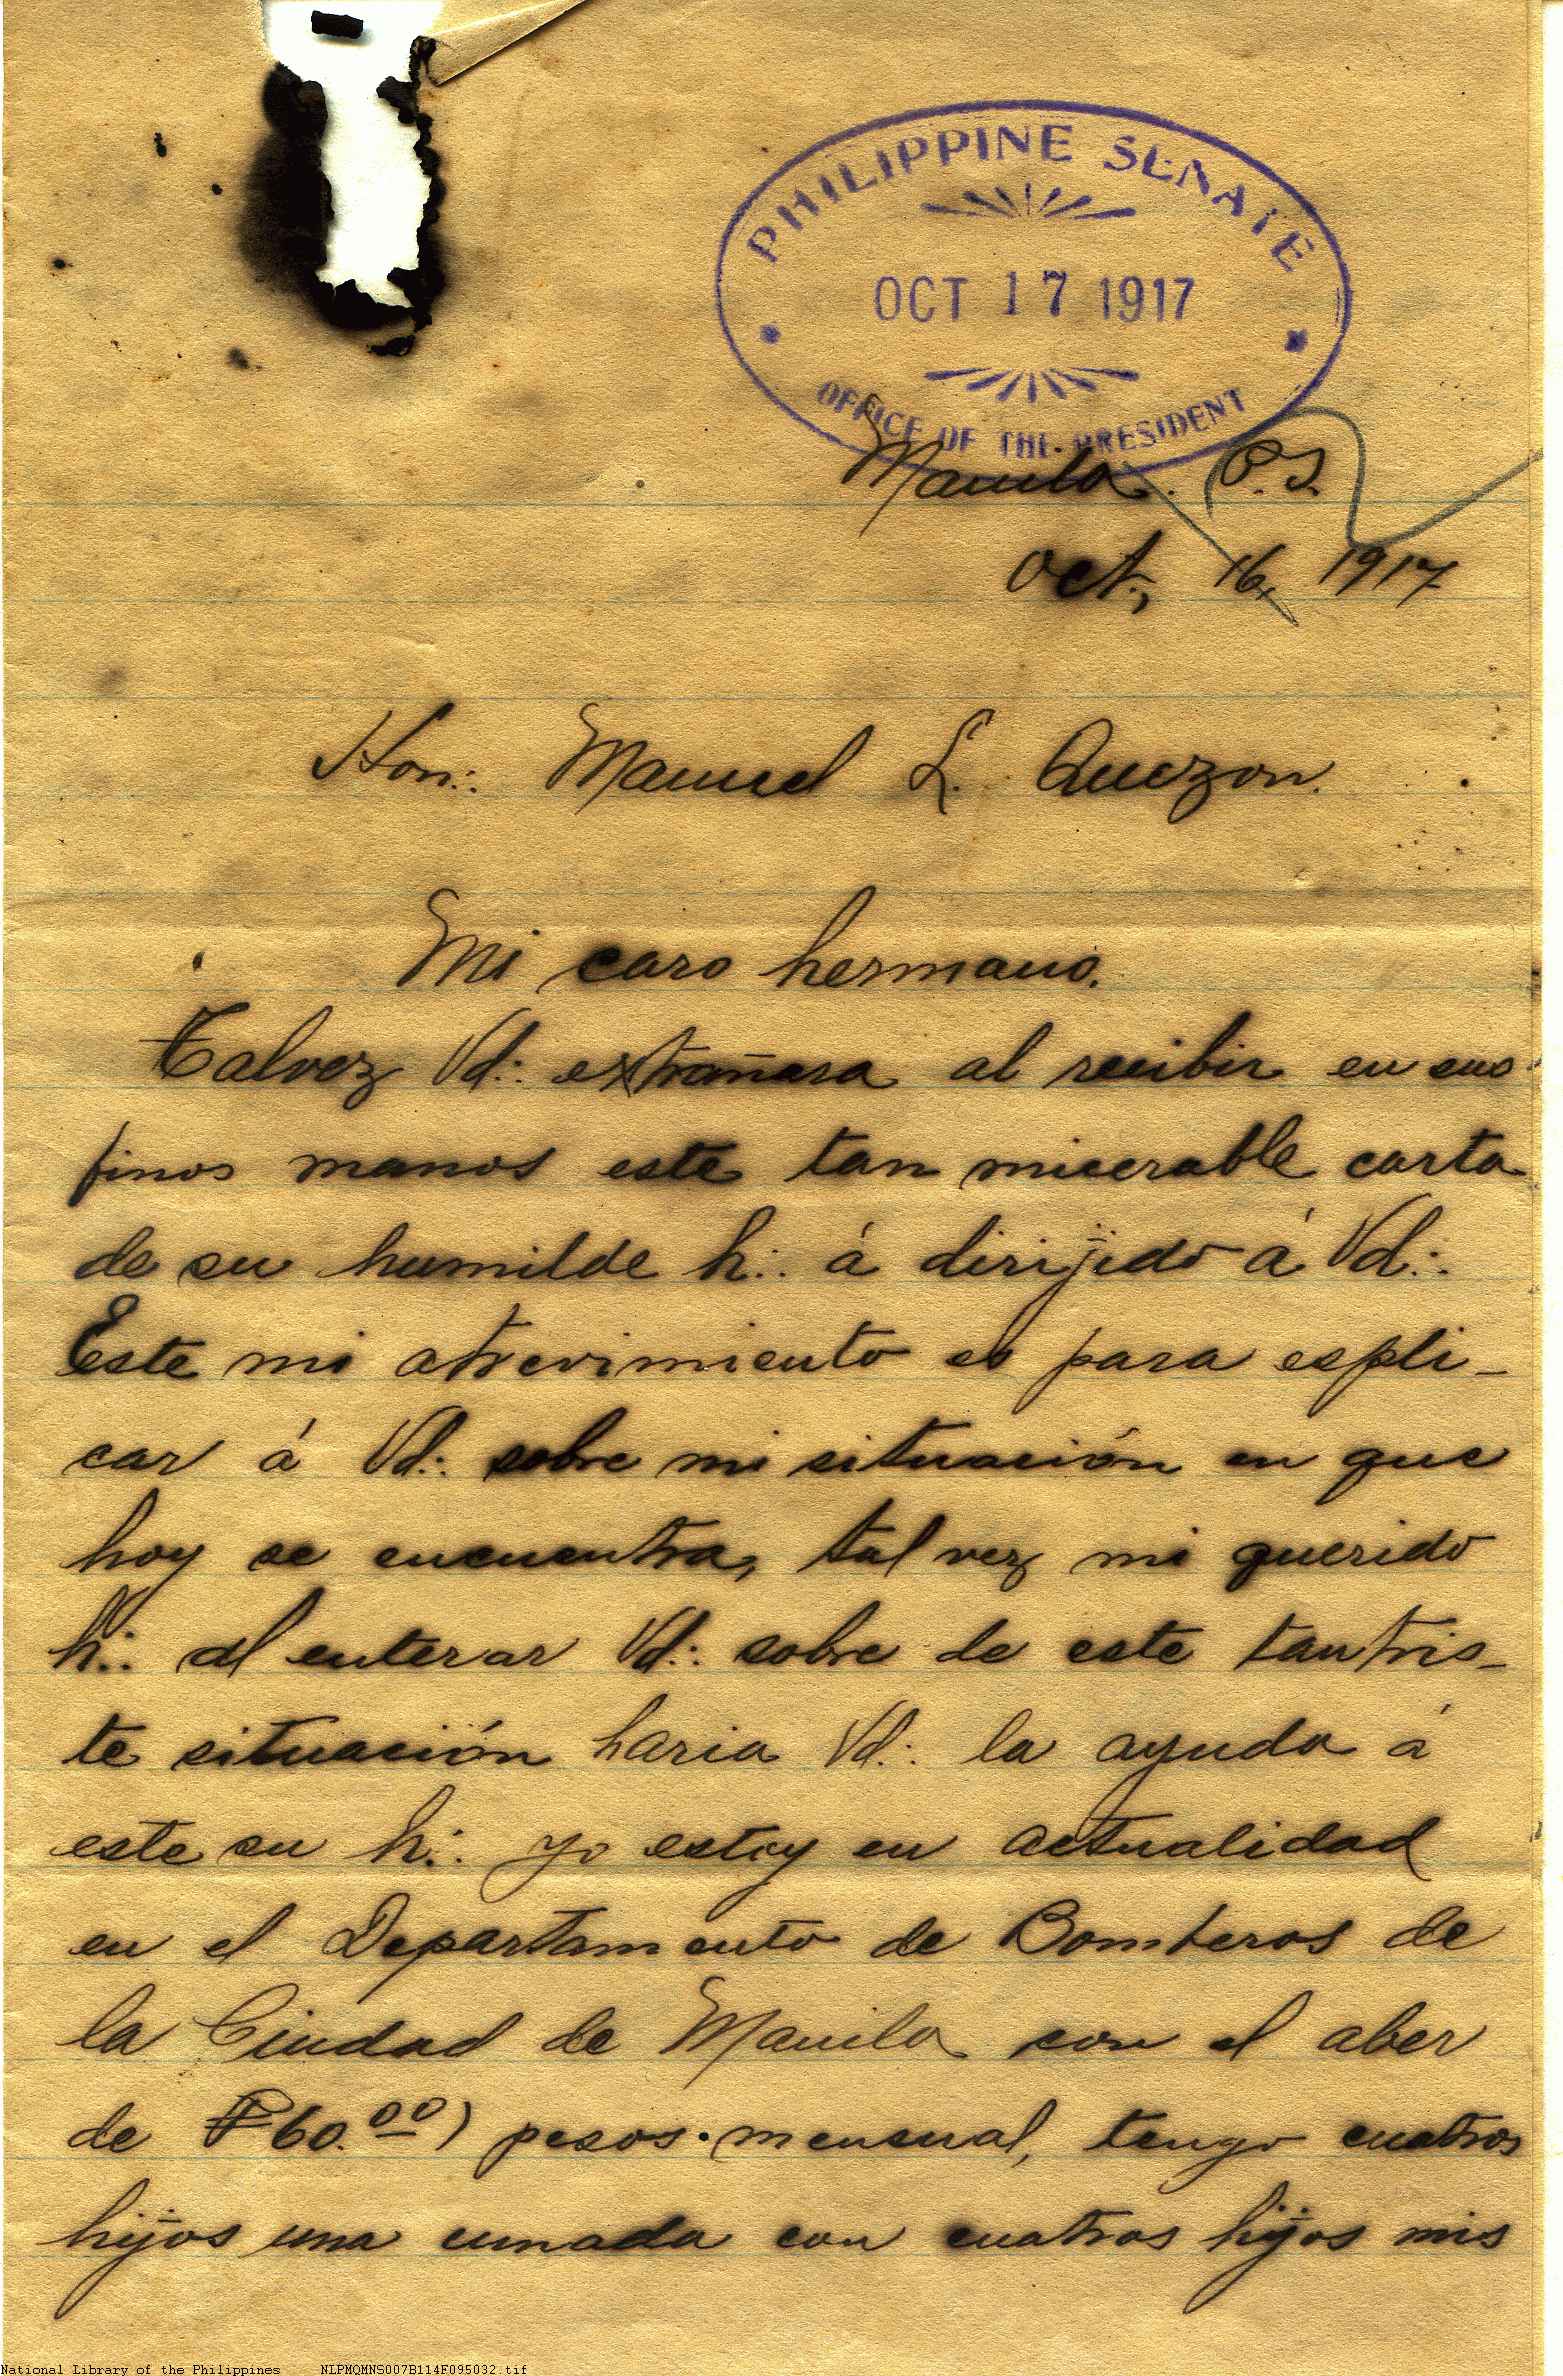 PHILIPPINE SENATE
OCT 17 1917
OFFICE OF THE PRESIDENT
Manila. P.I.
Oct., 16, 1917
Hon:. Manuel L. Quezon.
Mi caro hermano.
Talvez Vd:. extrañara al recibir en sus
finos manos este tan micerable carta
de su humilde h:. á dirijido á Vd:.
Este mi atrevimiento es para espli-
car á Vd:. sobre mi situación en que
hoy se encuentra, tal vez mi querido
h:. al enterar Vd:. sobre de este tan tris-
te situación haria Vd:. la ayuda á
este su h:. yo estoy en actualidad
en el Departamento de Bomberos de
la Ciudad de Manila con el aber
de ₱60.00) pesos. mensual, tengo cuatros
hijos una cunada con cuatros hijos mis
National Library of the Philippines NLPMQMNS007B114F095032.tif